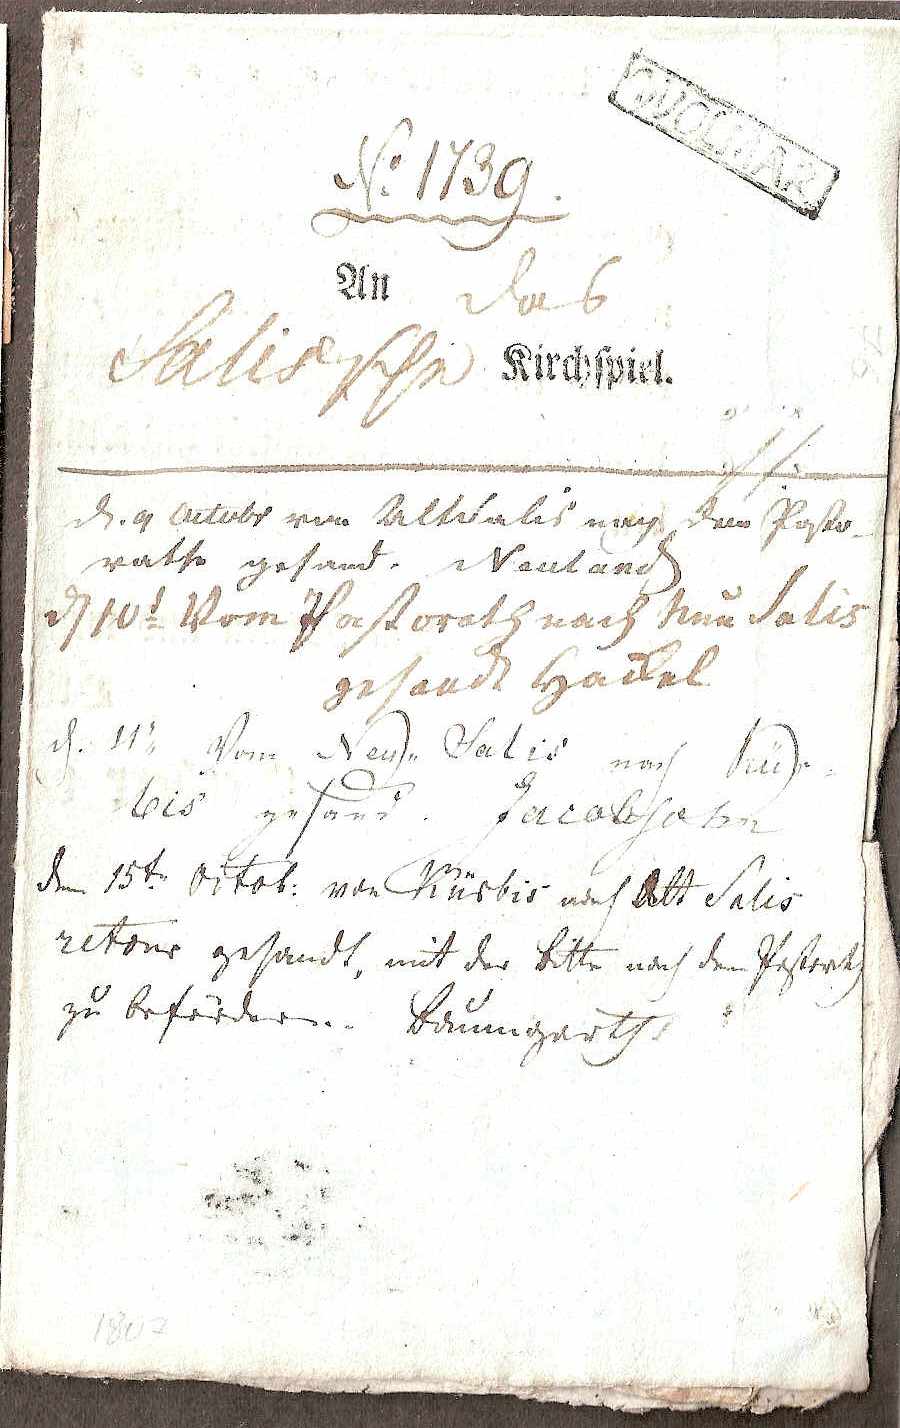 WOLMAR
No: 1739.
An das
Salissche Kirchspiel.
d. 9 Octobr von Altsalis nach dem Pasto-
rathe gesand. Neuland
d 10t Vom Pastorath nach Neu Salis
gesandt Hackel
d. 11t Vom Ney Salis nach Kür-
bis gesand. Jacobsohn
den 15t Octob: von Kürbis nach Alt Salis
retour gesandt, mit der Bitte nach dem Pastorath
zu befördern. Baumgarth
1807